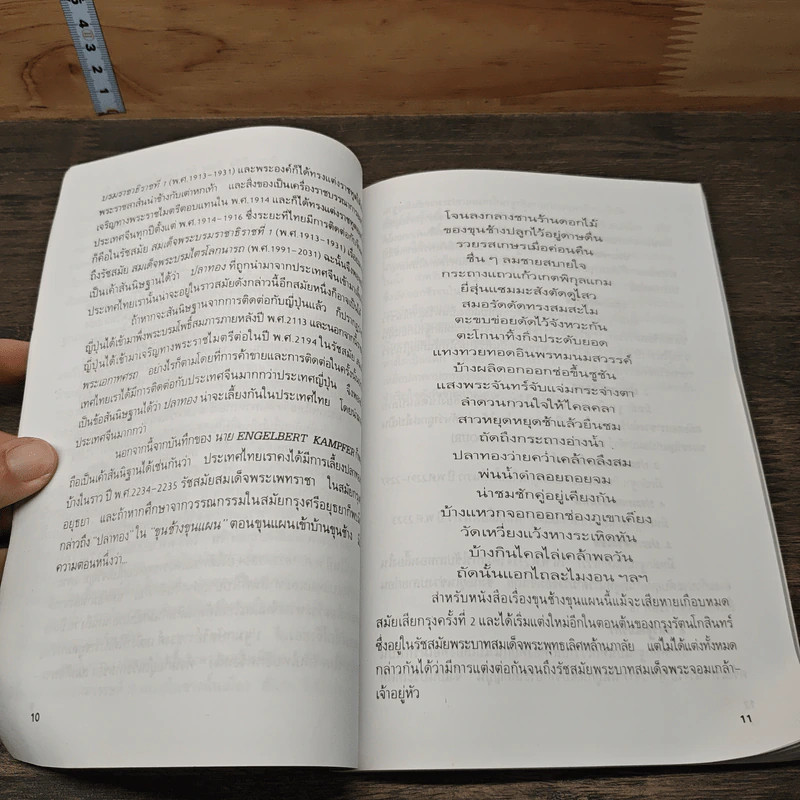 5 4 3 2 1
บรมราชาธิราชที่ 1 (พ.ศ.1913-1931) และพระองค์ก็ได้ทรงแต่งราชทูต
พระราชสาส์นนำช้างกับเต่าหกเท้า และสิ่งของเป็นเครื่องราชบรรณาการ
เจริญทางพระราชไมตรีตอบแทนใน พ.ศ.1914 และก็ได้ทรงแต่งราชทูต
ประเทศจีนทุกปีตั้งแต่ พ.ศ.1914-1916 ซึ่งระยะที่ไทยมีการติดต่อกับ
ก็คือในรัชสมัย สมเด็จพระบรมราชาธิราชที่ 1 (พ.ศ.1913-1931)
ถึงรัชสมัย สมเด็จพระบรมไตรโลกนารถ (พ.ศ.1991-2031) ฉะนั้นจึง
เป็นเค้าสันนิษฐานได้ว่า ปลาทอง ที่ถูกนำมาจากประเทศจีนเข้ามา
ประเทศไทยเรานั้นน่าจะอยู่ในราวสมัยดังกล่าวนี้อีกสมัยหนึ่งก็อาจ
ถ้าหากจะสันนิษฐานจากการติดต่อกับญี่ปุ่นแล้ว ก็
ญี่ปุ่นได้เข้ามาพึ่งพระบรมโพธิ์สมภารภายหลังปี พ.ศ.2113 และนอกจาก
ญี่ปุ่นได้เข้ามาเจริญทางพระราชไมตรีต่อในปี พ.ศ.2194 ในรัชสมัย
พระเอกาทศรถ อย่างไรก็ตามโดยที่การค้าขายและการติดต่อในครั้ง
เทศไทยเราได้มีการติดต่อกับประเทศจีนมากกว่าประเทศญี่ปุ่น จึง
เป็นข้อสันนิษฐานได้ว่า ปลาทอง น่าจะเลี้ยงกันในประเทศไทย โดย
ประเทศจีนมากกว่า
นอกจากนี้จากบันทึกของ นาย ENGELBERT KAMPFER
ถือเป็นเค้าสันนิฐานได้เช่นกันว่า ประเทศไทยเราคงได้มีการเลี้ยงปลา
บ้างในราว ปี พ.ศ.2234-2235 รัชสมัยสมเด็จพระเพทราชา ในสมัยกรุง
อยุธยา และถ้าหากศึกษาจากวรรณกรรมในสมัยกรุงศรีอยุธยาก็
กล่าวถึง "ปลาทอง" ใน "ขุนช้างขุนแผน" ตอนขุนแผนเข้าบ้านขุนช้าง
ความตอนหนึ่งว่า...
10
โจนลงกลางชานร้านดอกไม้
ของขุนช้างปลูกไว้อยู่ดาษดื่น
รวยรสเกษรเมื่อค่อนคืน
ชื่น ๆ ลมชายสบายใจ
กระถางแถวแก้วเกดพิกุลแกม
ยี่สุ่นแซมมะสังดัดดูไสว
สมอรัดดัดทรงสมสะไม
ตะขบข่อยดัดไว้จังหวะกัน
ตะโกนาทิ้งกิ่งประดับยอด
แทงทวยทอดอินพรหมนมสวรรค์
บ้างผลิดอกออกช่อขึ้นชูชัน
แสงพระจันทร์จับแจ่มกระจ่างตา
ลำดวนกวนใจให้ไคลคลา
สาวหยุดหยุดช้าแล้วยืนชม
ถัดถึงกระถางอ่างน้ำ
ปลาทองว่ายคว่ำเคล้าคลึงสม
พ่นน้ำดำลอยถอยจม
น่าชมชักคู่อยู่เคียงกัน
บ้างแหวกจอกออกช่องภูเขาเคียง
วัดเหวี่ยงแว้งหางระเหิดหัน
บ้างกินไคลไล่เคล้าพลวัน
ถัดนั้นแอกไถละไมงอน ฯลฯ
สำหรับหนังสือเรื่องขุนช้างขุนแผนนี้แม้จะเสียหายเกือบหมด
สมัยเสียกรุงครั้งที่ 2 และได้เริ่มแต่งใหม่อีกในตอนต้นของกรุงรัตนโกสินทร์
ซึ่งอยู่ในรัชสมัยพระบาทสมเด็จพระพุทธเลิศหล้านภาลัย แต่ไม่ได้แต่งทั้งหมด
กล่าวกันได้ว่ามีการแต่งต่อกันจนถึงรัชสมัยพระบาทสมเด็จพระจอมเกล้า-
เจ้าอยู่หัว
11